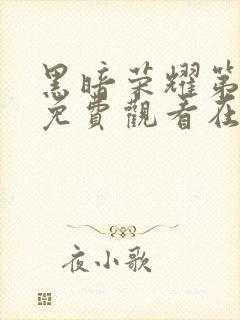 黑暗荣耀第
免費觀看在
夜小歌